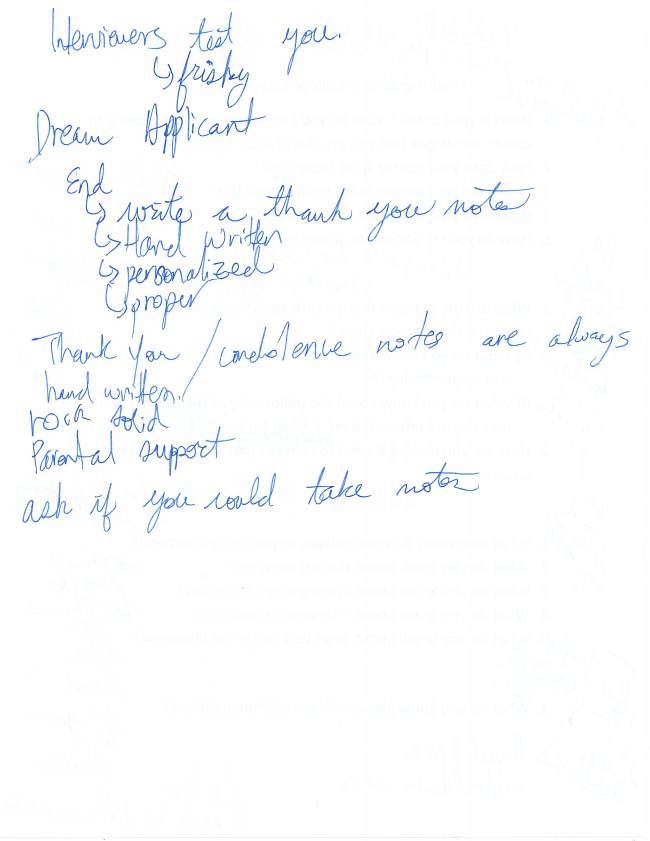 Interviewers test you.
↳ frisky
Dream Applicant
End
↳ write a thank you notes
↳ Hand written
↳ personalized
↳ proper
Thank you / condolence notes are always
hand written.
rock solid
Parental support
ask if you could take notes